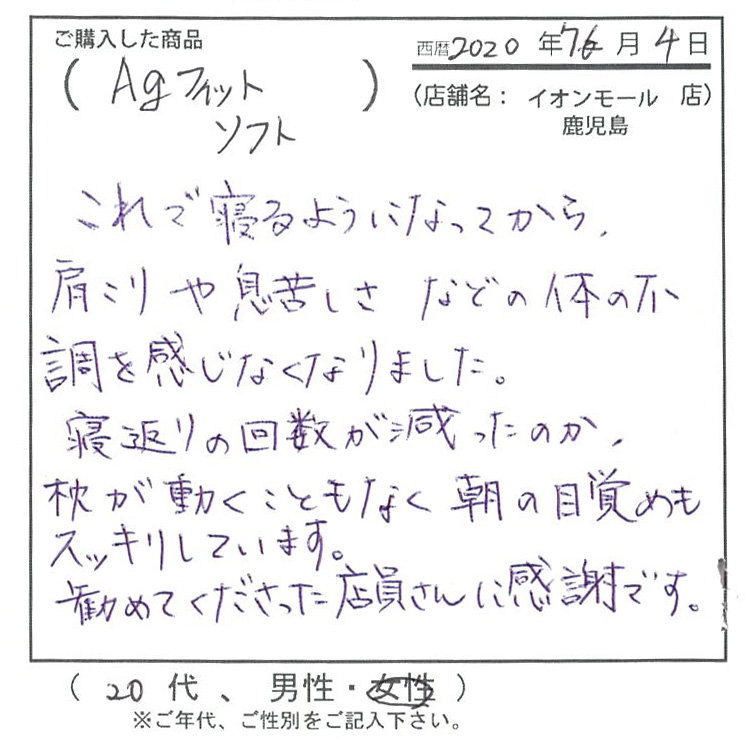 ご購入した商品
西暦2020年7月4日
(Agフィット
ソフト)
(店舗名: イオンモール 店)
鹿児島
これで寝るようになってから、
肩こりや息苦しさなどの体の不
調を感じなくなりました。
寝返りの回数が減ったのか、
枕が動くこともなく朝の目覚めも
スッキリしています。
勧めてくださった店員さんに感謝です。
(20代、男性・女性)
※ご年代、ご性別をご記入下さい。